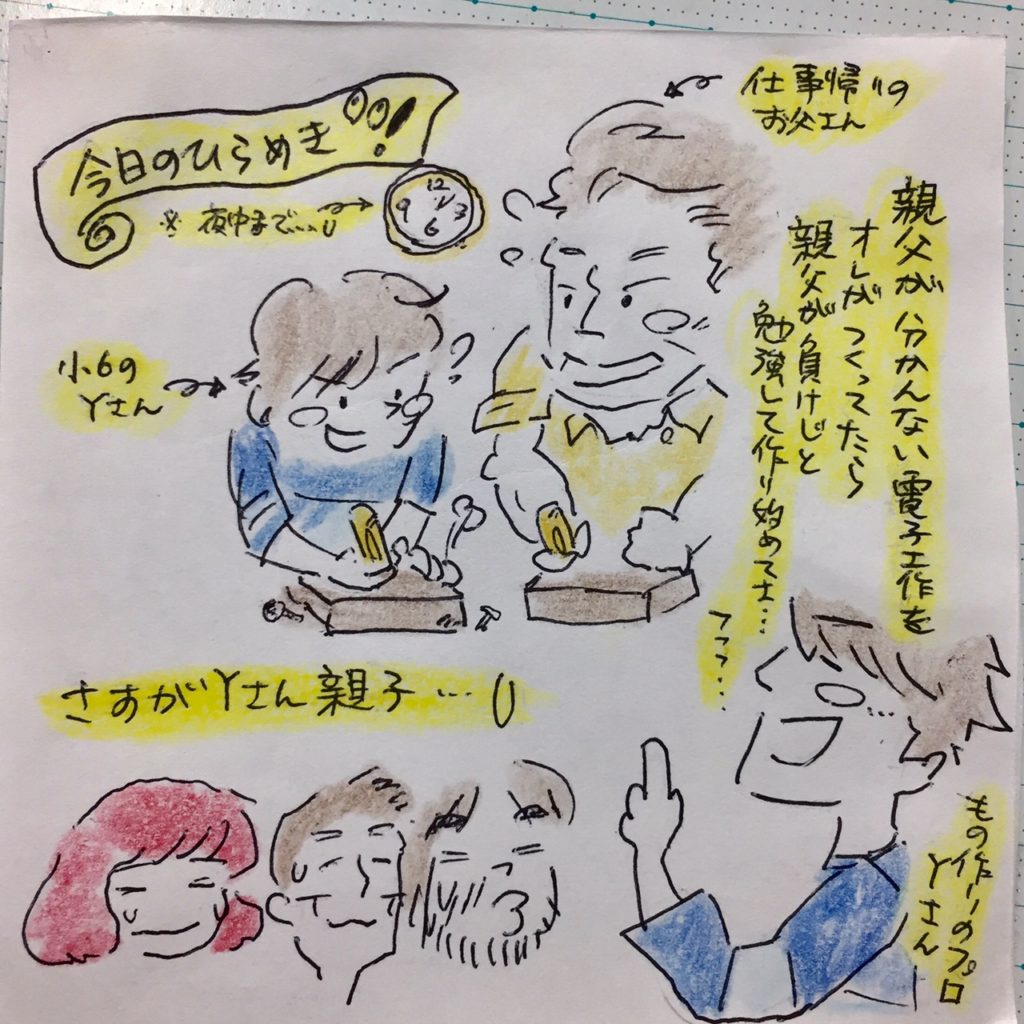 今日のひらめき!
※ 夜中まで…
12
3
6
9
仕事帰りの
お父さん
小6の
Yさん
親父が分かんない電子工作を
オレがつくってたら
親父が負けじと
勉強して作り始めてさ…
フフフ…
さすがYさん親子…
もの作りのプロ
Yさん